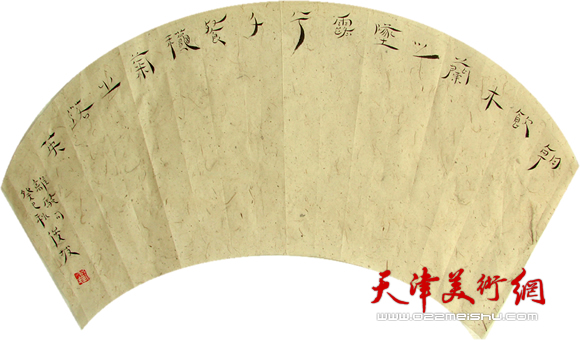 朝飲木蘭之墜露兮夕餐龝菊之落英
離騷句
癸巳秋
天津美術網
www.022meishu.com